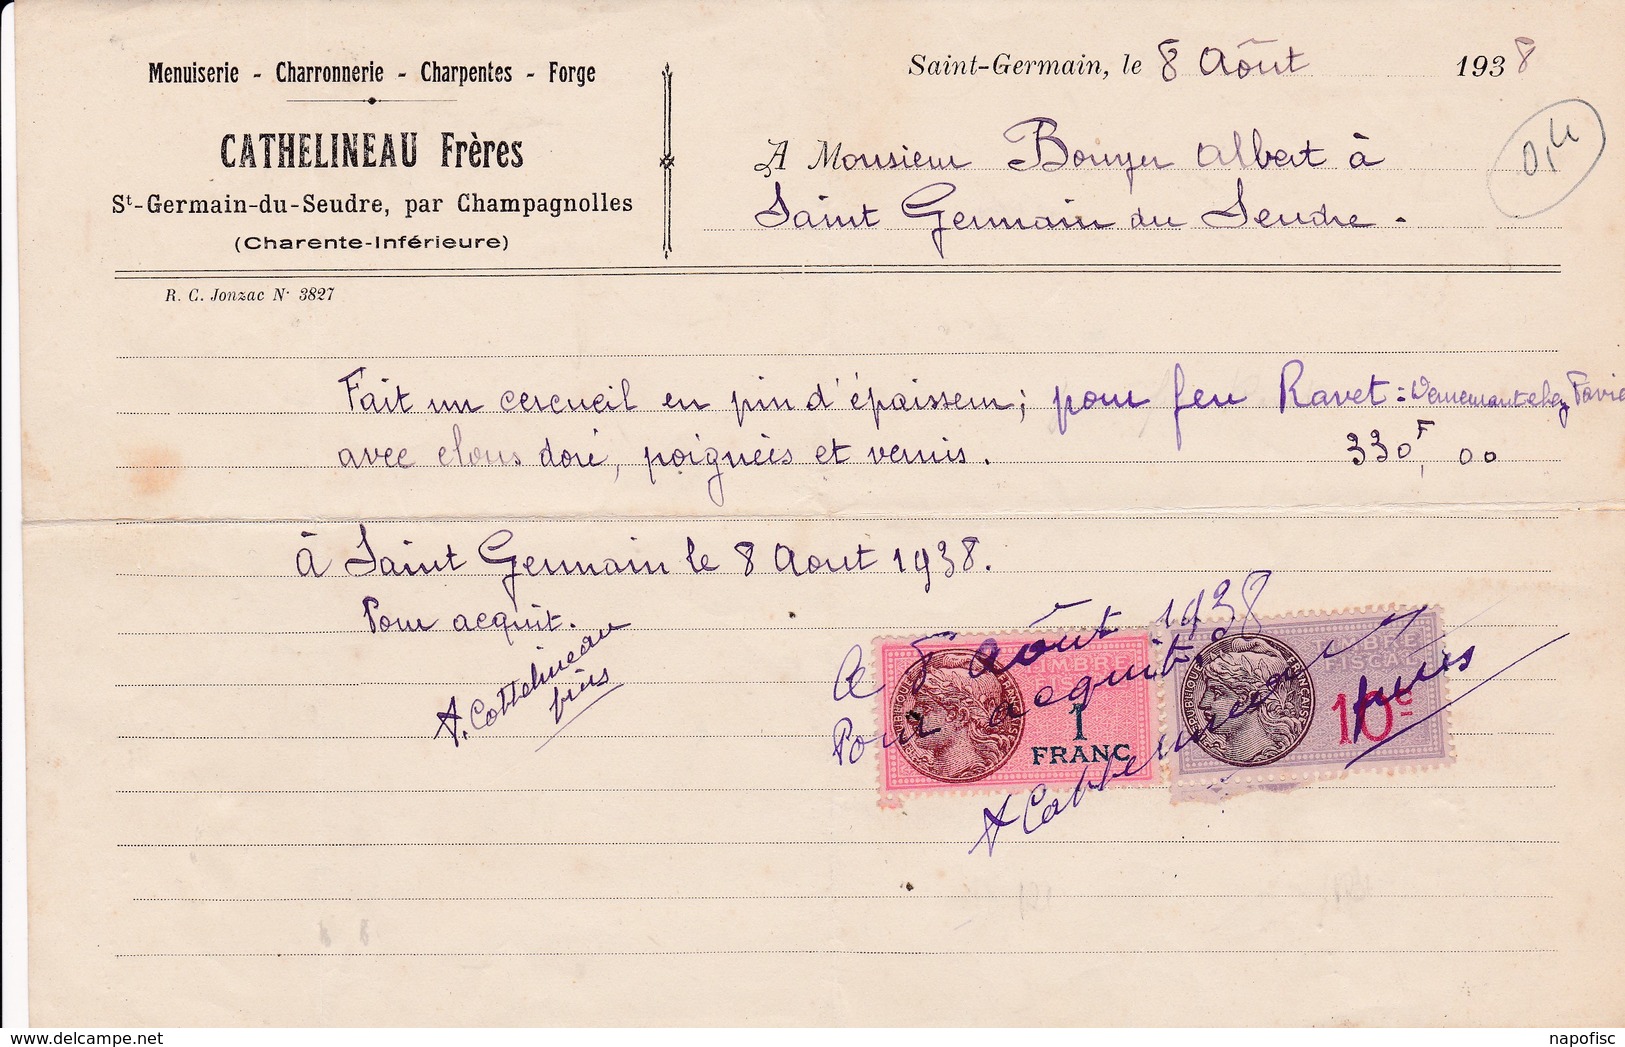 Menuiserie - Charronnerie - Charpentes - Forge
CATHELINEAU Frères
St-Germain-du-Seudre, par Champagnolles
(Charente-Inférieure)
R. C. Jonzac N° 3827
Saint-Germain, le 8 Août 1938
A Monsieur Bouyer Albert à
Saint Germain du Seudre.
0,4
Fait un cercueil en pin d'épaisseur; pour feu Ravet:
avec clous doré, poignées et vernis. 330F, 00
à Saint Germain le 8 Aout 1938.
Pour acquit.
A. Cathelineau
frères
Le 8 Août 1938
Pour acquit.
A Cathelineau
frères
TIMBRE
FISCAL
RÉPUBLIQUE FRANÇAISE
1
FRANC
TIMBRE
FISCAL
RÉPUBLIQUE FRANÇAISE
10c
napofisc